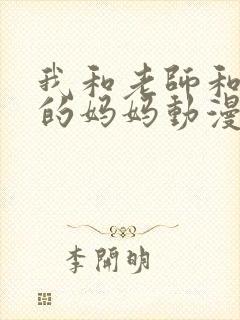 我和老師和
的妈妈動漫
李開明